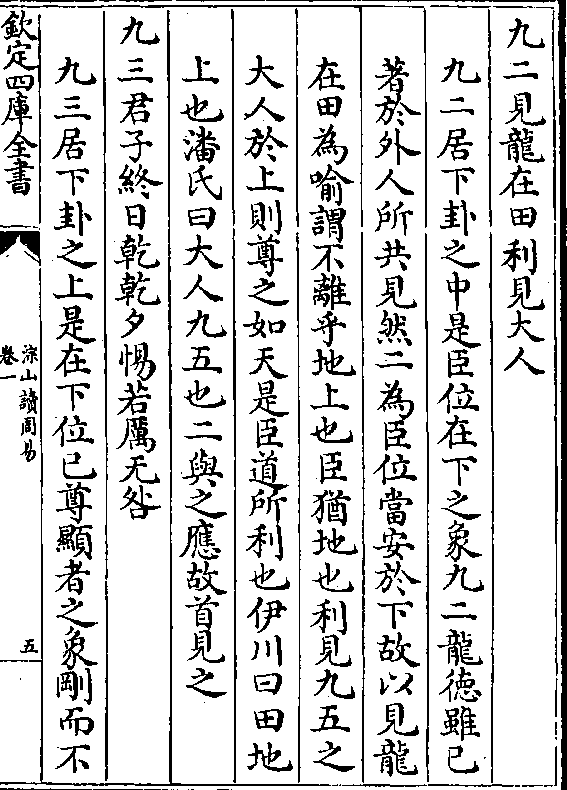 九二見龍在田利見大人
九二居下卦之中是臣位在下之象九二龍徳雖已
著於外人所共見然二為臣位當安於下故以見龍
在田為喻謂不離乎地上也臣猶地也利見九五之
大人於上則尊之如天是臣道所利也伊川曰田地
上也潘氏曰大人九五也二與之應故首見之
九三君子終日乾乾夕惕若厲无咎
九三居下卦之上是在下位已尊顯者之象剛而不
欽定四庫全書
淙山讀周易
卷一
五